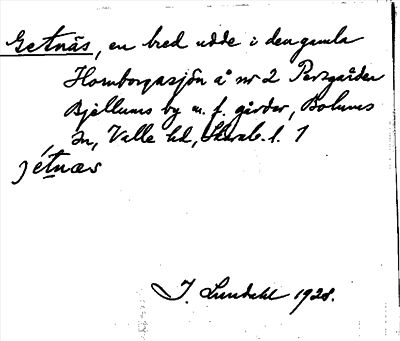 Getnäs, en bred udde i den gamla
Hornborgasjön å nr 2 Persgården
Bjellums by m. f. gårdar, Bolums
sn, Valle hd, Skarab. l. 1
jé̱tnæs
I. Lundahl 1928.